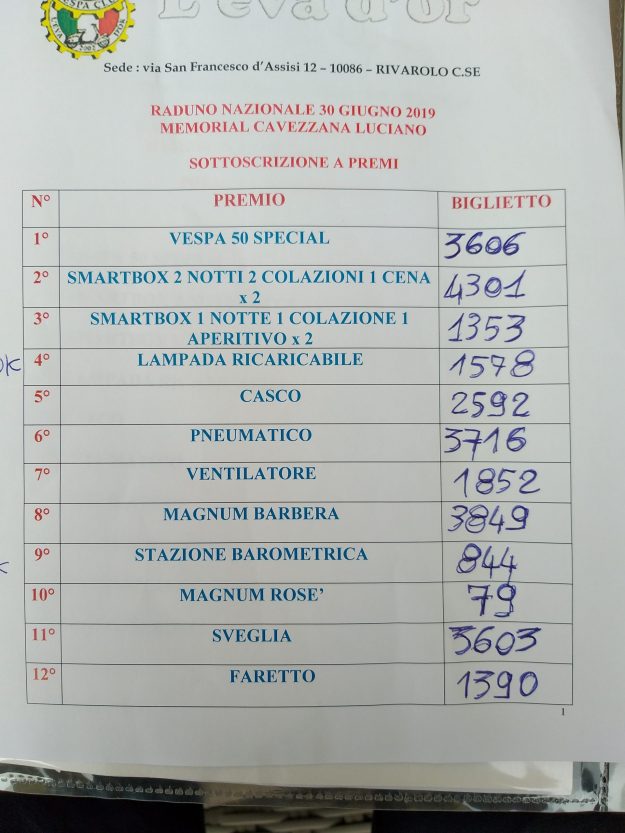 VESPA CLUB
L'EVA D'OR
2002
L'eva d'or
Sede : via San Francesco d'Assisi 12 – 10086 – RIVAROLO C.SE
RADUNO NAZIONALE 30 GIUGNO 2019
MEMORIAL CAVEZZANA LUCIANO
SOTTOSCRIZIONE A PREMI
N° PREMIO BIGLIETTO
1° VESPA 50 SPECIAL 3606
2° SMARTBOX 2 NOTTI 2 COLAZIONI 1 CENA
x 2 4301
3° SMARTBOX 1 NOTTE 1 COLAZIONE 1
APERITIVO x 2 1353
OK 4° LAMPADA RICARICABILE 1578
5° CASCO 2592
6° PNEUMATICO 3716
7° VENTILATORE 1852
8° MAGNUM BARBERA 3849
9° STAZIONE BAROMETRICA 844
10° MAGNUM ROSE' 79
11° SVEGLIA 3603
12° FARETTO 1390
1